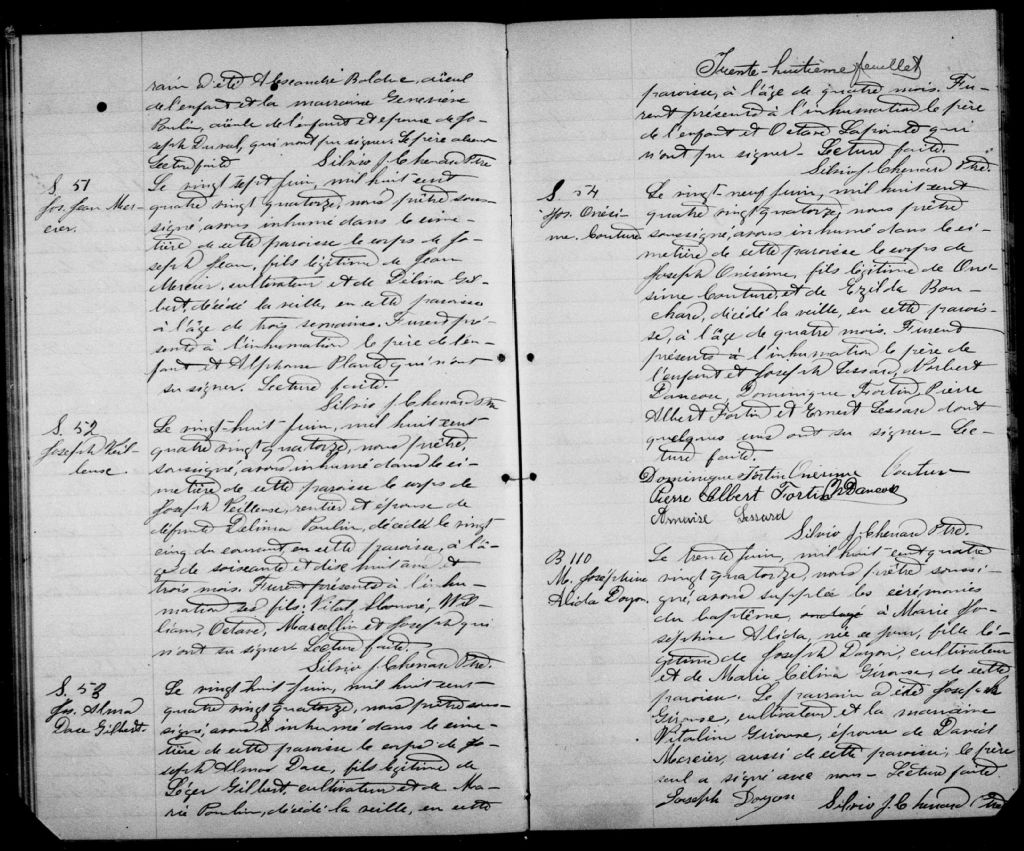 rain a été Alexandre Bolduc, aïeul
de l'enfant et la marraine Geneviève
Poulin, aïeule de l'enfant et épouse de Jo-
seph Duval, qui n'ont pu signer. Le père absent
Lecture faite Silvio J. Chenard Ptre
S. 51
Jos. Jean Mer-
cier.
Le vingt sept Juin, mil huit cent
quatre vingt quatorze, nous prêtre sous-
signé, avons inhumé dans le cime-
tière de cette paroisse le corps de Jo-
seph Jean, fils légitime de Jean
Mercier, cultivateur et de Délina Gil-
bert, décédé la veille, en cette paroisse
à l'âge de trois semaines. Furent pré-
sents à l'inhumation le père de l'en-
fant et Alphonse Plante qui n'ont
su signer. Lecture faite.
Silvio J. Chenard Ptre
S. 52
Joseph Veil-
leuse.
Le vingt-huit Juin, mil huit cent
quatre vingt quatorze, nous prêtre,
soussigné, avons inhumé dans le ci-
metière de cette paroisse le corps de
Joseph Veilleuse, rentier et épouse de
défunte Delima Poulin, décédé le vingt
cinq du courant, en cette paroisse, à l'â-
ge de soixante et dix huit ans et
trois mois. Furent présents à l'inhu-
mation ses fils: Vital, Wil-
liam, Octave, Marcellin et Joseph qui
n'ont su signer. Lecture faite.
Silvio J. Chenard Ptre.
S. 53
Jos. Alma
Dace Gilbert.
Le vingt huit Juin, mil huit cent
quatre vingt quatorze, nous prêtre sous-
signé, avons inhumé dans le cime-
tière de cette paroisse le corps de Jo-
seph Alma Dace, fils légitime de
Léger Gilbert, cultivateur et de Ma-
rie Poulin, décédé la veille, en cette
Trente-huitième feuillet
paroisse, à l'âge de quatre mois. Fu-
rent présents à l'inhumation le père
de l'enfant et Octave Lapointe qui
n'ont pu signer. Lecture faite.
Silvio J. Chenard Ptre.
S. 54
Jos. Onési-
me Couture
Le vingt-neuf Juin, mil huit cent
quatre vingt quatorze, nous prêtre
soussigné, avons inhumé dans le ci-
metière de cette paroisse le corps de
Joseph Onésime, fils légitime de Oné-
sime Couture, et de Ezilda Bou-
chard, décédé la veille, en cette parois-
se, à l'âge de quatre mois. Furent
présents à l'inhumation le père de
l'enfant et Joseph Lessard, Norbert
Dancose, Dominique Fortin, Pierre
Albert Fortin et Ernest Lessard dont
quelques uns ont su signer - Lec-
ture faite.
Dominique Fortin Onésime Couture
Pierre Albert Fortin N Dancose
Lessard
Silvio J. Chenard Ptre.
B 110
M. Joséphine
Alida Doyon.
Le trente Juin, mil huit cent quatre
vingt quatorze, nous prêtre soussi-
gné, avons supplée les cérémonies
du baptême, ondoyé à Marie Jo-
sephine Alida, née ce jour, fille lé-
gitime de Joseph Doyon, cultivateur
et de Marie Célina Giroux, de cette
paroisse. Le parrain a été Joseph
Giroux, cultivateur et la marraine
Vitaline Giroux, épouse de David
Mercier, aussi de cette paroisse, le père
seul a signé avec nous - Lecture faite
Joseph Doyon Silvio J. Chenard Ptre